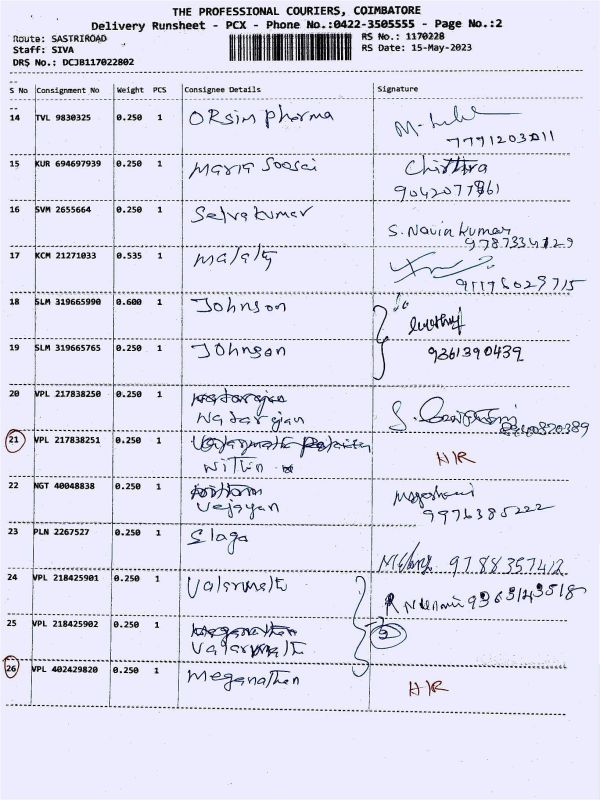 THE PROFESSIONAL COURIERS, COIMBATORE
Delivery Runsheet - PCX - Phone No.:0422-3505555 - Page No.:2
Route: SASTRIROAD
RS No.: 1170228
Staff: SIVA
RS Date: 15-May-2023
DRS No.: DCJB117022802
S No Consignment No Weight PCS Consignee Details Signature
14 TVL 9830325 0.250 1 Orsim pharma
15 KUR 694697939 0.250 1 maria Soosai Chithra
16 SVM 2655664 0.250 1 Selvakumar S. Navin Kumar
17 KCM 21271033 0.535 1 malaty
91176029715
18 SLM 319665990 0.600 1 Johnson
19 SLM 319665765 0.250 1 Johnson 9361390439
20 VPL 217838250 0.250 1
Natarajan
21 VPL 217838251 0.250 1
Nithin H/R
22 NGT 40048838 0.250 1
Vejayan 9976385222
23 PLN 2267527 0.250 1 Elaga
9788357412
24 VPL 218425901 0.250 1 Valarmati
25 VPL 218425902 0.250 1 2
26 VPL 402429820 0.250 1 Meganathan H/R